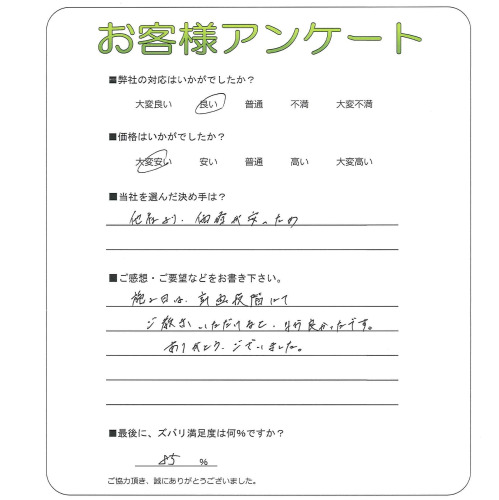 お客様アンケート
■弊社の対応はいかがでしたか？
大変良い 良い 普通 不満 大変不満
■価格はいかがでしたか？
大変安い 安い 普通 高い 大変高い
■当社を選んだ決め手は？
他社より、価格が安ったの
■ご感想・ご要望などをお書き下さい。
施工日は、計画段階にて
ご教えいただけると、
良かったです。
ありがとうございました。
■最後に、ズバリ満足度は何％ですか？
85 ％
ご協力頂き、誠にありがとうございました。